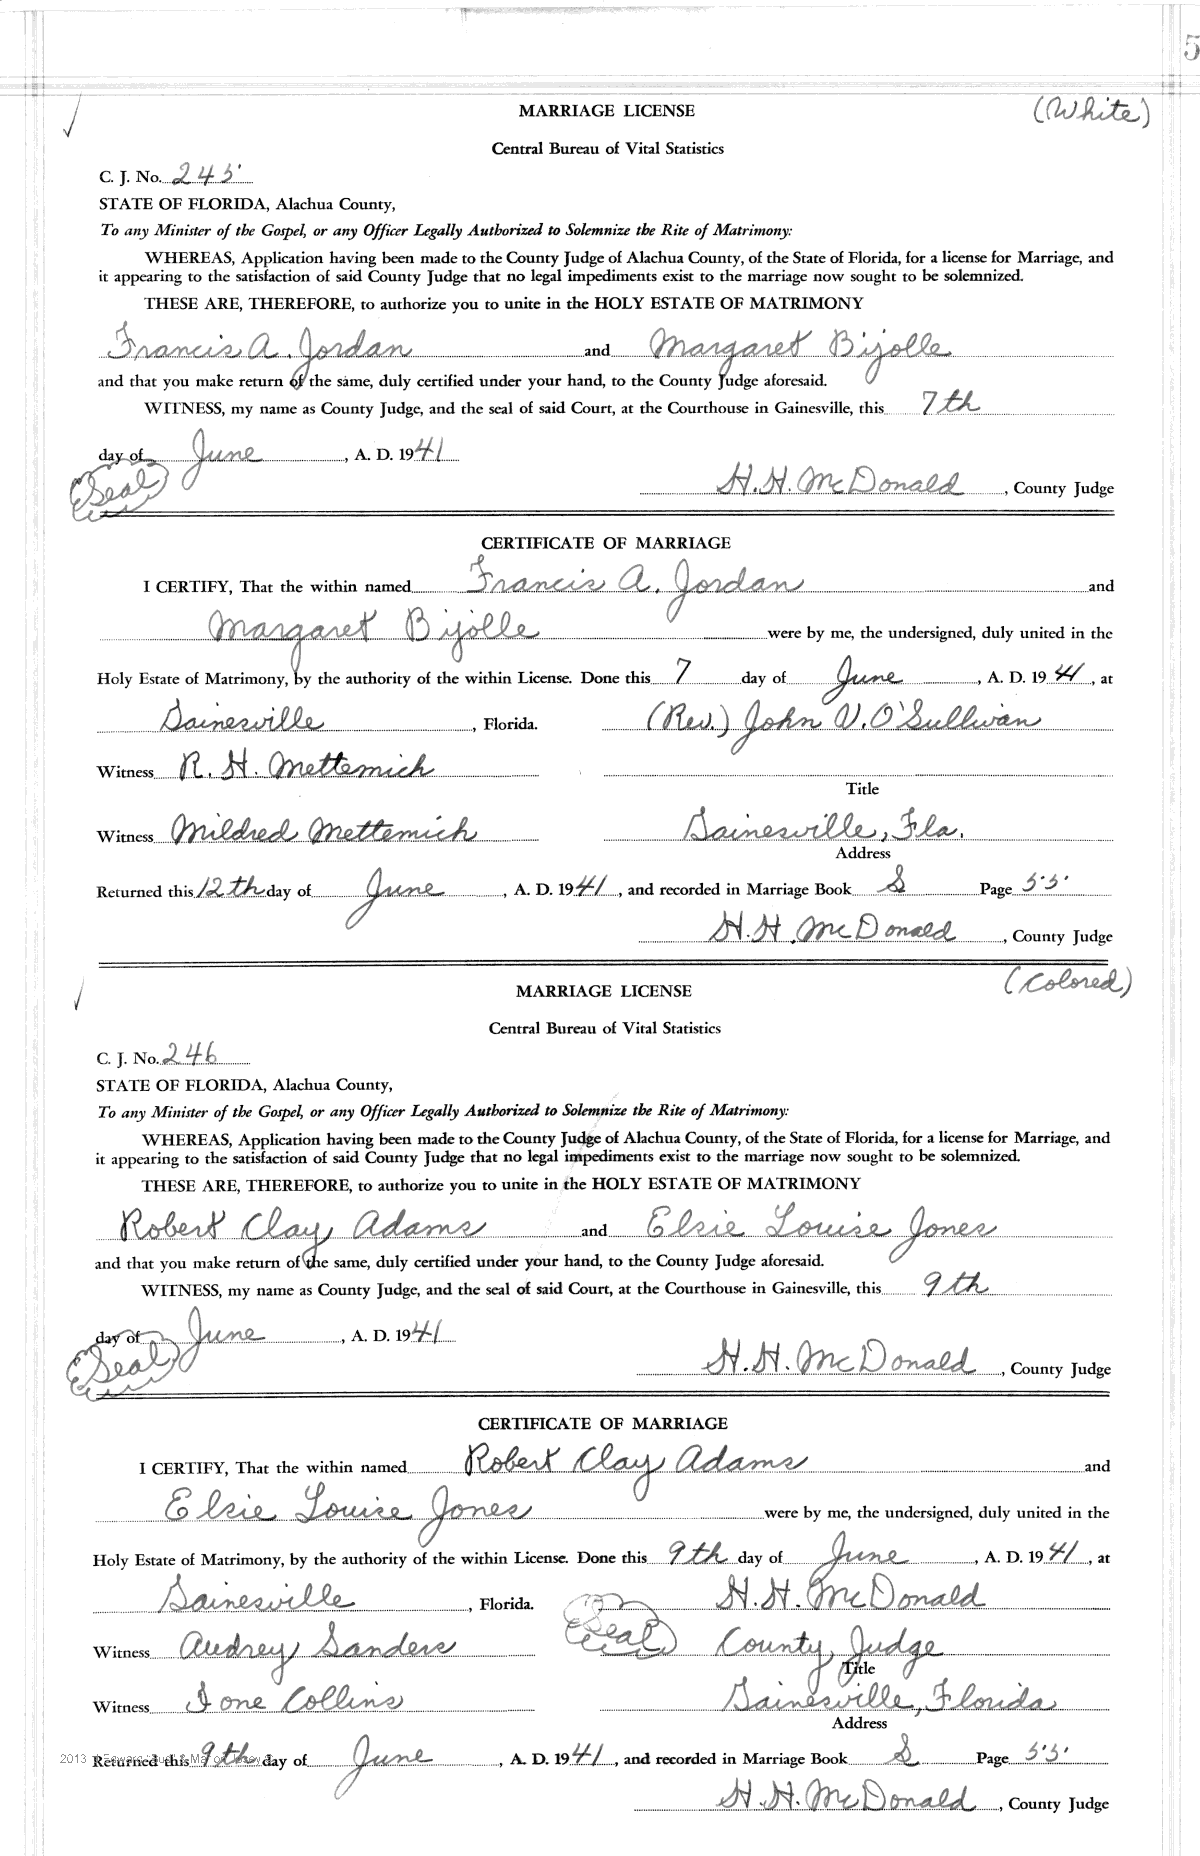 5
(White)
MARRIAGE LICENSE
Central Bureau of Vital Statistics
C. J. No. 245
STATE OF FLORIDA, Alachua County,
To any Minister of the Gospel, or any Officer Legally Authorized to Solemnize the Rite of Matrimony:
WHEREAS, Application having been made to the County Judge of Alachua County, of the State of Florida, for a license for Marriage, and
it appearing to the satisfaction of said County Judge that no legal impediments exist to the marriage now sought to be solemnized.
THESE ARE, THEREFORE, to authorize you to unite in the HOLY ESTATE OF MATRIMONY
Francis A. Jordan and Margaret Bijolle
and that you make return of the same, duly certified under your hand, to the County Judge aforesaid.
WITNESS, my name as County Judge, and the seal of said Court, at the Courthouse in Gainesville, this 7th
day of June, A. D. 1941
(Seal)
H. H. McDonald, County Judge
CERTIFICATE OF MARRIAGE
I CERTIFY, That the within named Francis A. Jordan and
Margaret Bijolle were by me, the undersigned, duly united in the
Holy Estate of Matrimony, by the authority of the within License. Done this 7 day of June, A. D. 1941, at
Gainesville, Florida. (Rev.) John V. O'Sullivan
Witness R. H. Metternich
Title
Witness Mildred Metternich Gainesville, Fla.
Address
Returned this 12th day of June, A. D. 1941, and recorded in Marriage Book S Page 55
H. H. McDonald, County Judge
(Colored)
MARRIAGE LICENSE
Central Bureau of Vital Statistics
C. J. No. 246
STATE OF FLORIDA, Alachua County,
To any Minister of the Gospel, or any Officer Legally Authorized to Solemnize the Rite of Matrimony:
WHEREAS, Application having been made to the County Judge of Alachua County, of the State of Florida, for a license for Marriage, and
it appearing to the satisfaction of said County Judge that no legal impediments exist to the marriage now sought to be solemnized.
THESE ARE, THEREFORE, to authorize you to unite in the HOLY ESTATE OF MATRIMONY
Robert Clay Adams and Elsie Louise Jones
and that you make return of the same, duly certified under your hand, to the County Judge aforesaid.
WITNESS, my name as County Judge, and the seal of said Court, at the Courthouse in Gainesville, this 9th
day of June, A. D. 1941
(Seal)
H. H. McDonald, County Judge
CERTIFICATE OF MARRIAGE
I CERTIFY, That the within named Robert Clay Adams and
Elsie Louise Jones were by me, the undersigned, duly united in the
Holy Estate of Matrimony, by the authority of the within License. Done this 9th day of June, A. D. 1941, at
Gainesville, Florida. H. H. McDonald
Witness Audrey Sanders (Seal) County Judge
Title
Witness Ione Collins Gainesville, Florida
Address
2013
Returned this 9th day of June, A. D. 1941, and recorded in Marriage Book S Page 55
H. H. McDonald, County Judge